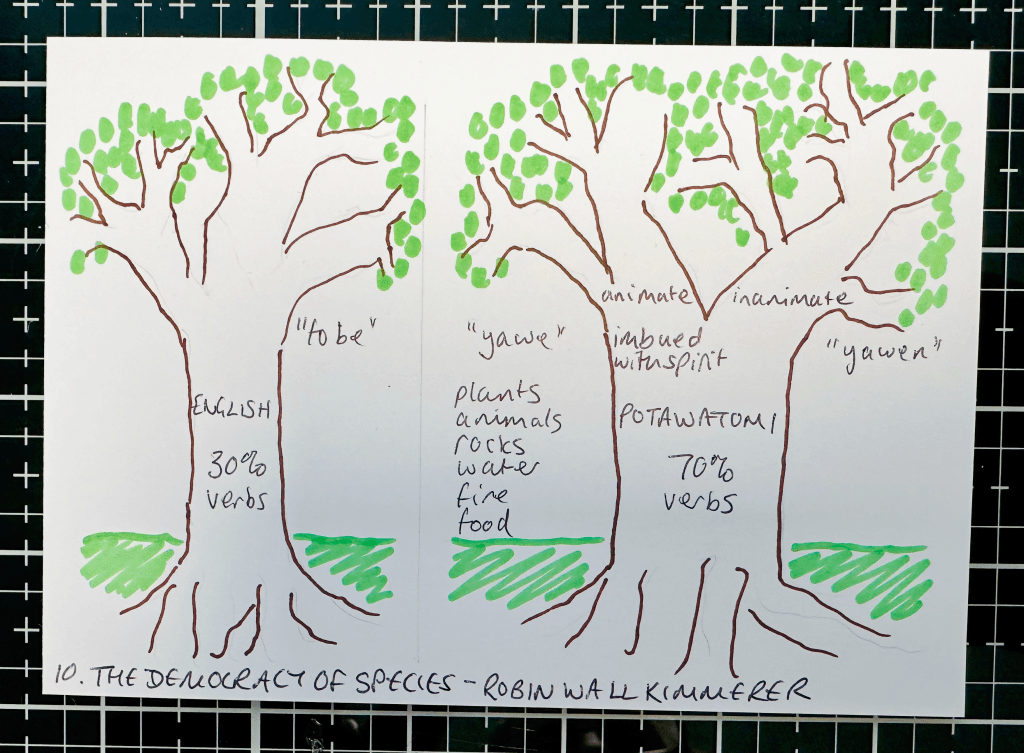 "to be"
ENGLISH
30%
verbs
animate inanimate
"yawe"
imbued
with spirit
"yawen"
plants
animals
rocks
water
fire
food
POTAWATOMI
70%
verbs
10. THE DEMOCRACY OF SPECIES - ROBIN WALL KIMMERER